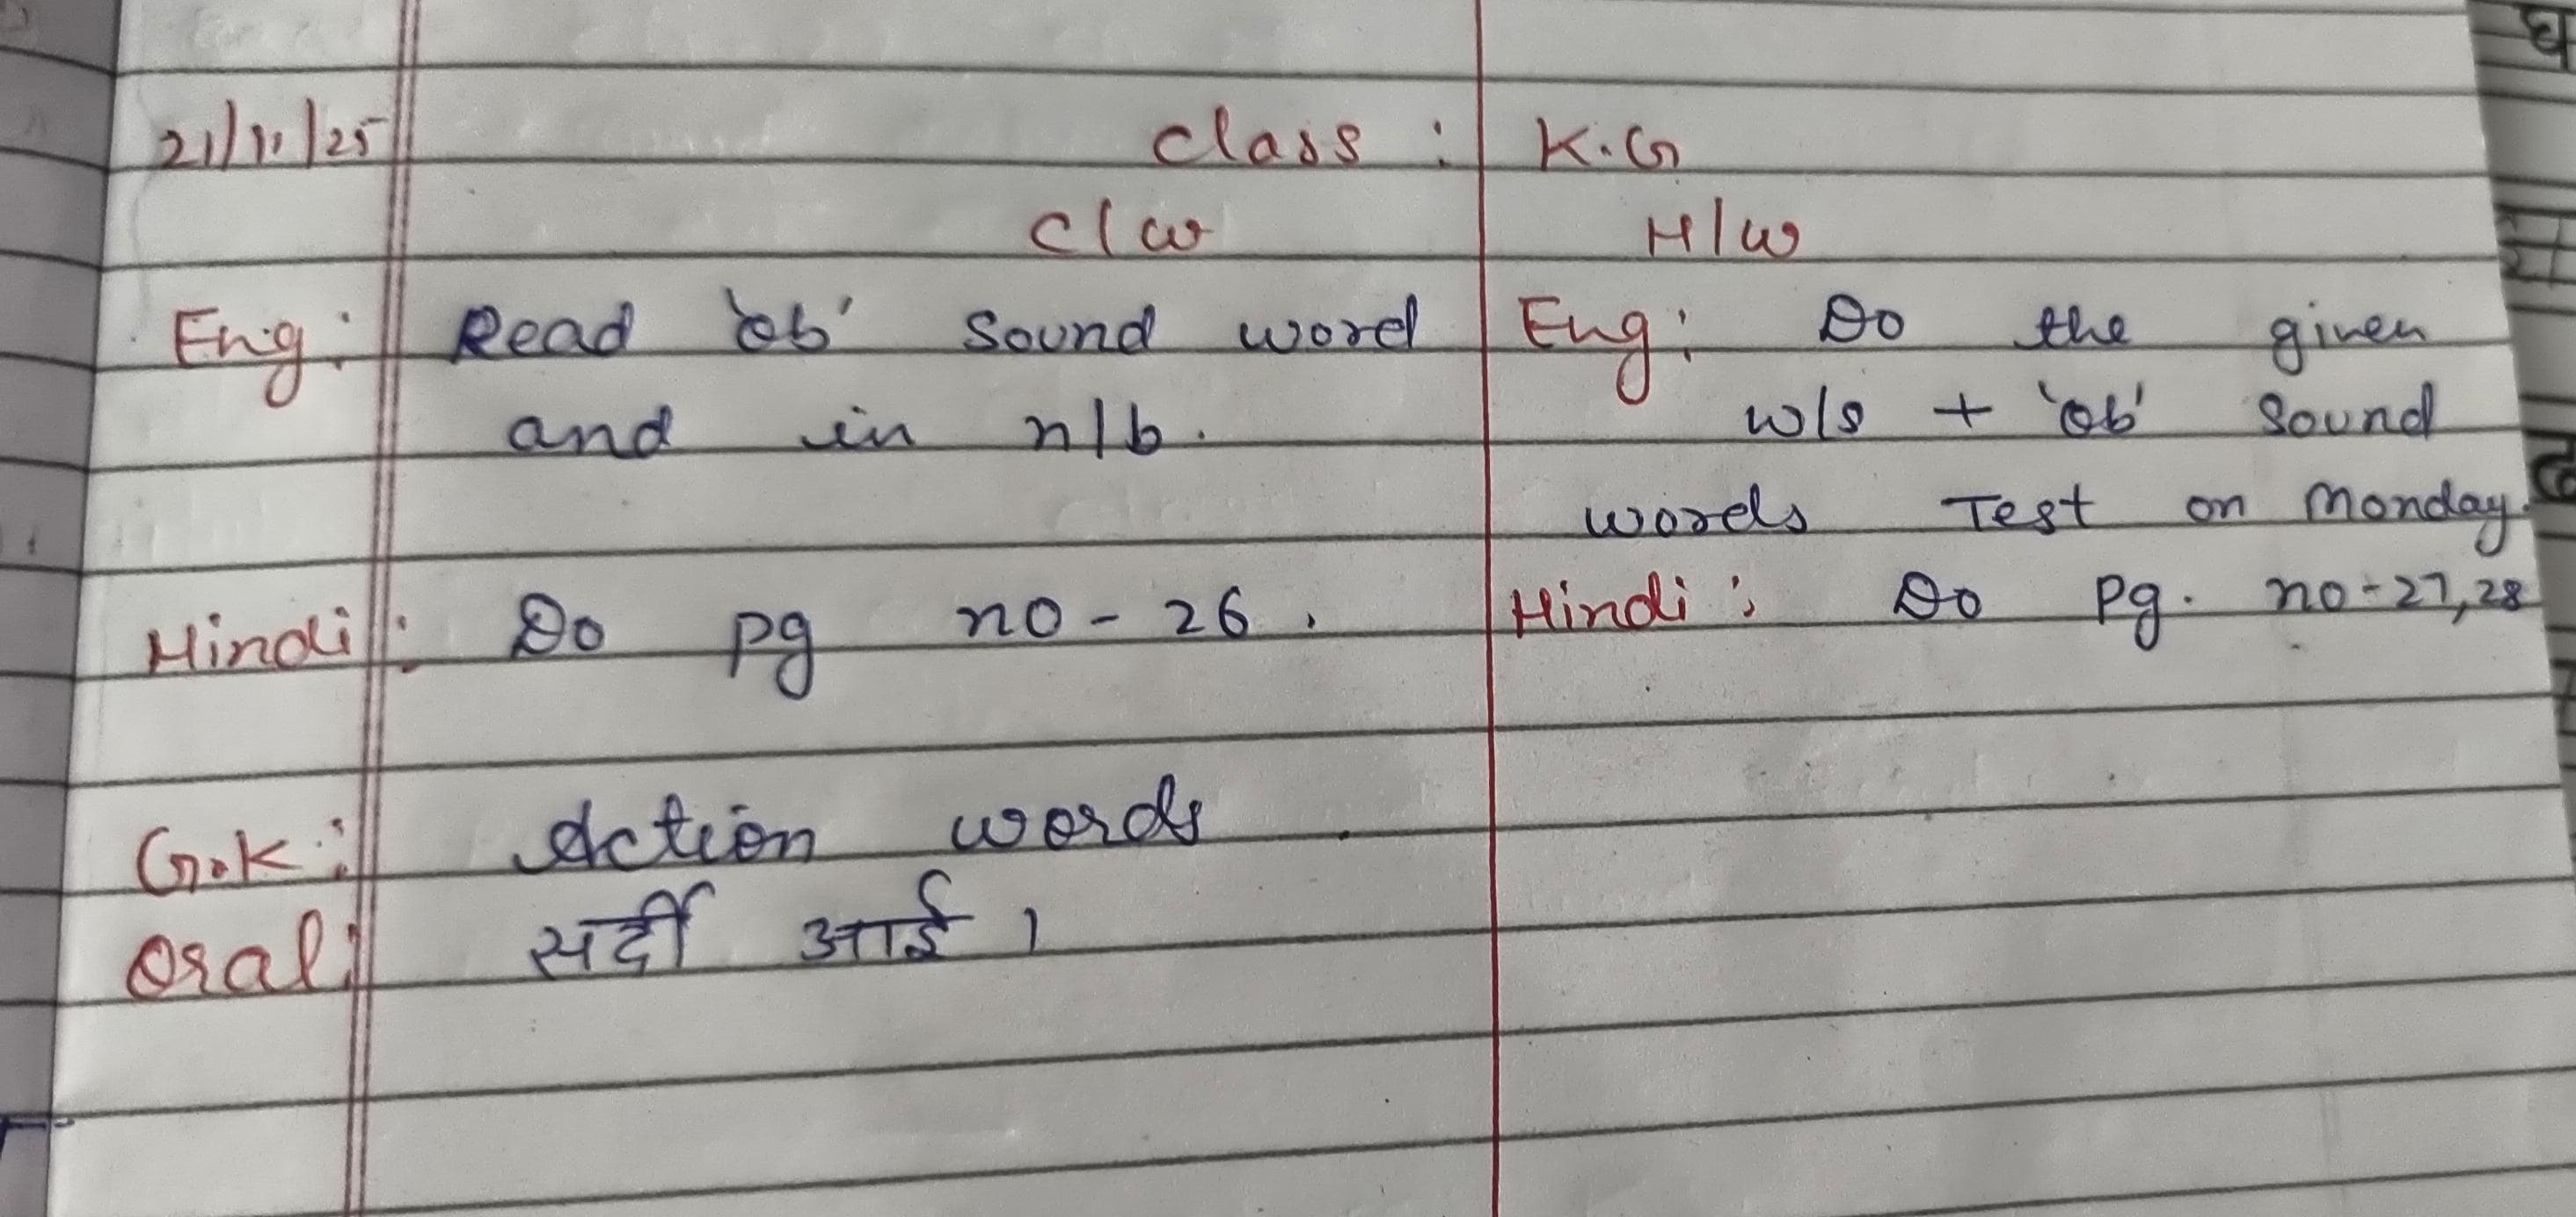 21/11/25 Class : K.G
C/w H/w
Eng: Read 'ob' sound word
and in n/b.
Eng: Do the given
w/s + 'ob' sound
words Test on Monday.
Hindi: Do pg no - 26.
Hindi: Do Pg. no - 27, 28
G.K: Action words
Oral: सर्दी आई।
घ